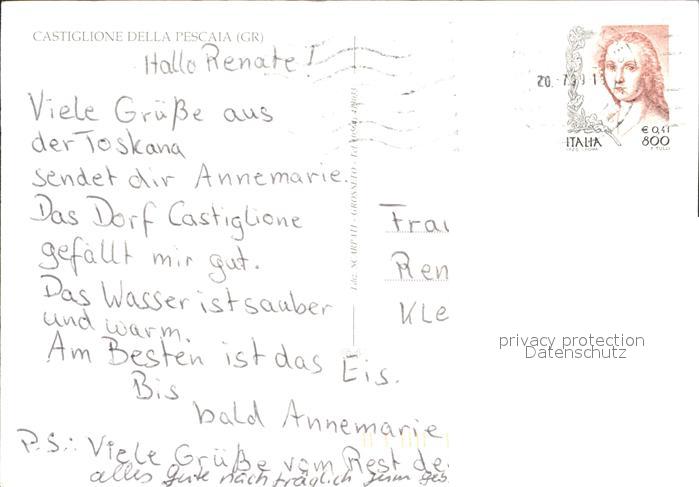 CASTIGLIONE DELLA PESCAIA (GR)
Hallo Renate!
Viele Grüße aus
der Toskana
sendet dir Annemarie.
Das Dorf Castiglione
gefällt mir gut.
Das Wasser ist sauber
und warm.
Am Besten ist das Eis.
Bis
bald Annemarie
P.S.: Viele Grüße vom Rest de
alles gute nachträglich zum ges
Frau
Ren
Kle
€ 0,41
ITALIA 800
privacy protection
Datenschutz